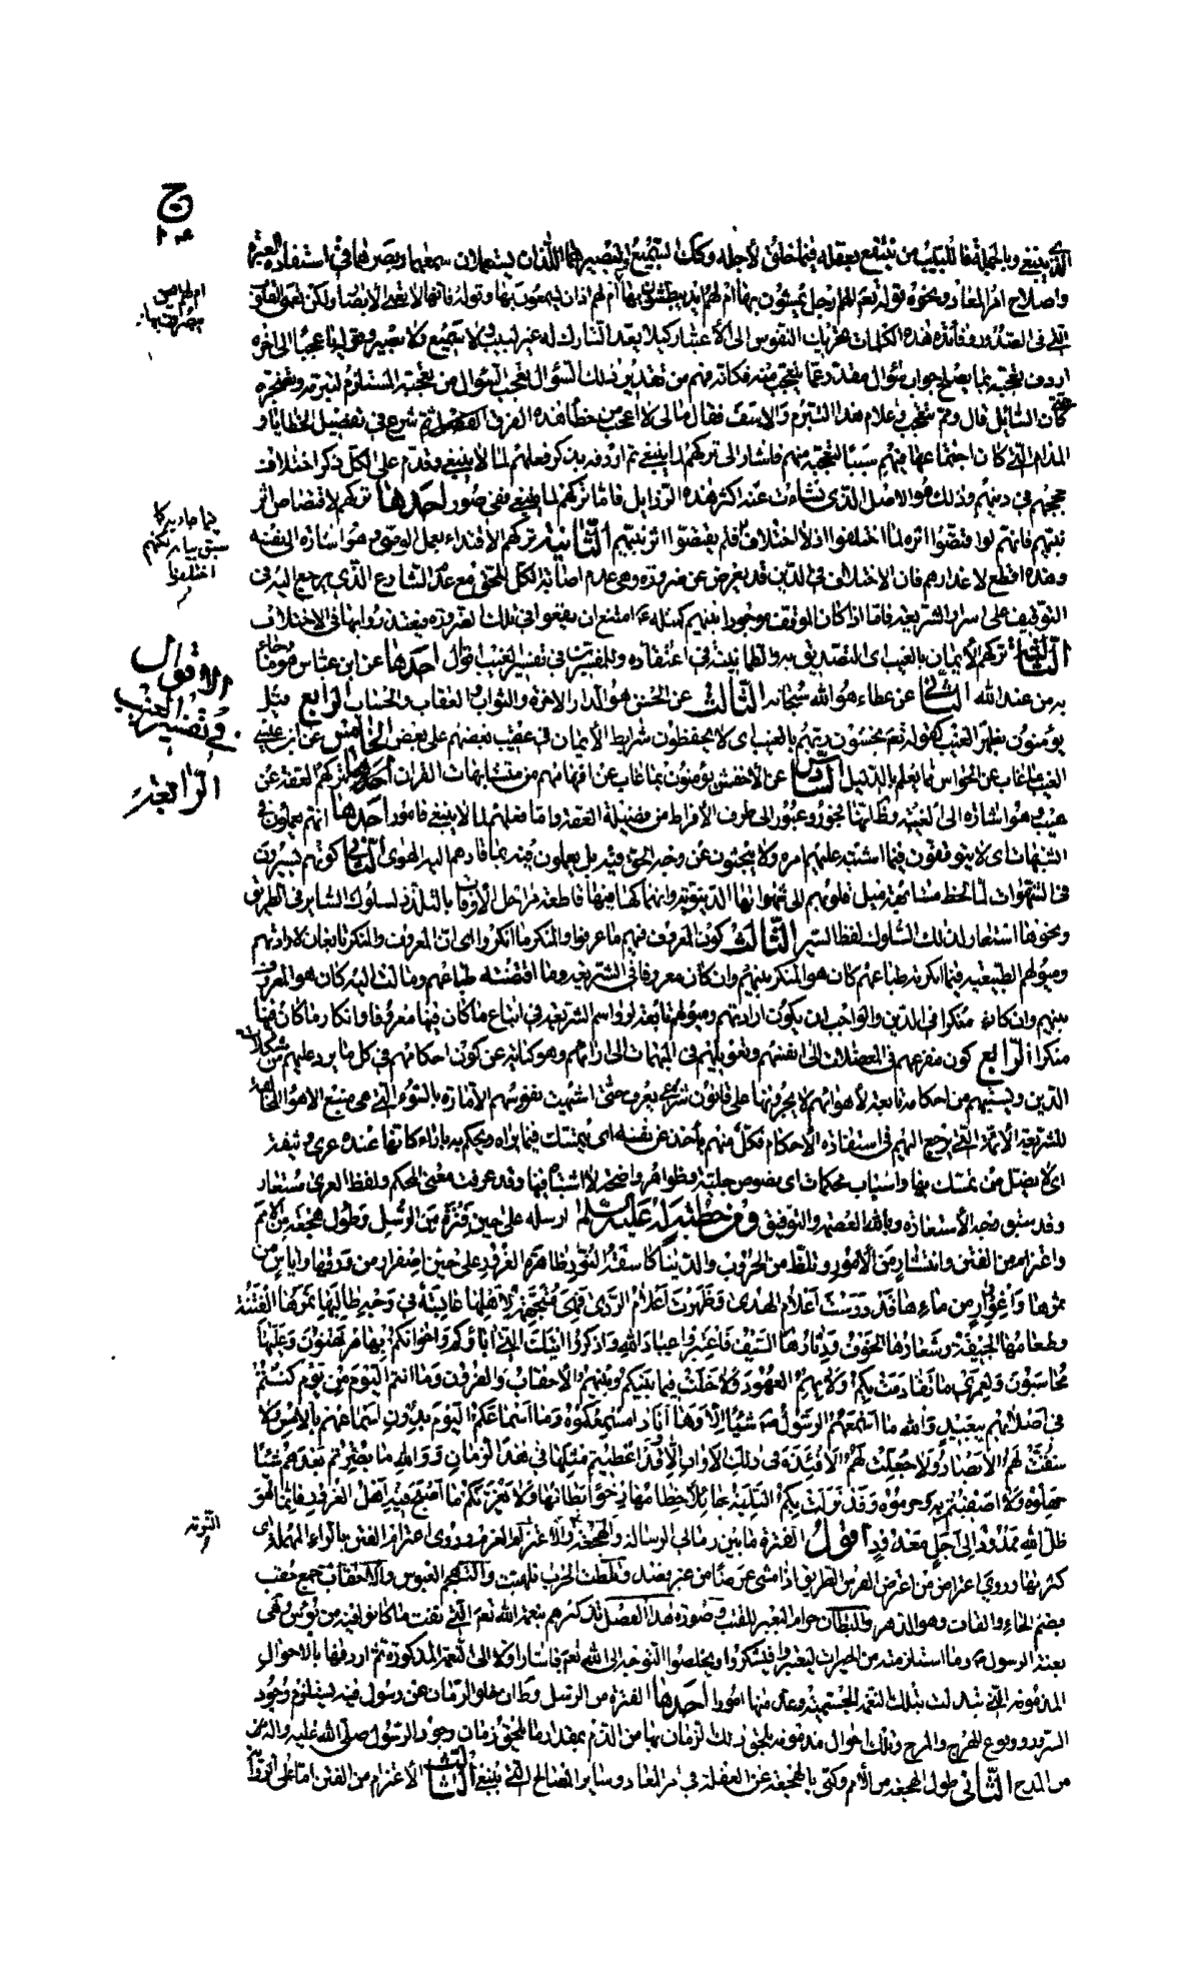 ج
الذى ينبغى وبالجملة فاللبيب من ينتفع بعقله فيما خلق لأجله وكذلك السميع والبصير هما اللذان يستعملان سمعهما وبصرهما فى استفادة العبرة
واصلاح امر المعاد ونحوه قوله تعم الهم ارجل يمشون بها ام لهم ايد يبطشون بها ام لهم اذان يسمعون بها وقوله فانها لا تعمى الابصار ولكن تعمى القلوب
التى فى الصدور وفائدة هذه الكلمات تحريك النفوس الى الاعتبار كيلا يعد التارك له غير لبيب ولا سميع ولا بصير وقوله فيا عجبا الى اخره
اردف تعجبه بما يصلح جواب سؤال مقدر عما يتعجب منه فكانه فهم من تقدير ذلك السؤال تعجب السائل من تعجبه المستلزم لتبرمه وتضجره
كان السائل قال ومم تتعجب وعلام هذا التبرم والاسف فقال مالى لا اعجب من خطأ هذه الفرق ثم شرع فى تفصيل الخطايا و
المذام التى كان اجتماعها فيهم سببا لتعجبه منهم فاشار الى تركهم لما ينبغى ثم اردفه بذكر فعلهم لما لا ينبغى وقدم على الكل ذكر اختلاف
حججهم فى دينهم وذلك هو الاصل الذى نشأت عنه اكثر هذه الرذايل فاما تركهم لما ينبغى ففى صور احدها تركهم لاقتصاص اثر
نبيهم فانهم لو اقتصوا اثره لما اختلفوا اذ لا اختلاف فلم يقتصوا اثر نبيهم الثانية تركهم الاقتداء بعمل الوصى وهو اشارة الى نفسه
وهذه اقطع لاعذارهم فان الاختلاف فى الدين قد يعرض عن ضرورة وهى عدم اصابة الكل للحق مع عدم الشارع الذى يرجع اليه فى
التوقيف على اسرار الشريعة فاما اذا كان الموقف موجودا بينهم كمثله ع امتنع ان يقعوا فى تلك الضرورة فيعتذروا بها فى الاختلاف
الثالثة تركهم الايمان بالغيب اى التصديق به والطمانينة فى اعتقاده وللمفسرين فى تفسير الغيب اقوال احدها عن ابن عباس هو ما جاء
به من عند الله الثانى عن عطاء هو الله سبحانه الثالث عن الحسن هو الدار الاخرة والثواب والعقاب والحساب الرابع قيل
يؤمنون بظهر الغيب كقوله تعم يخشون ربهم بالغيب اى لا يحفظون شرايط الايمان فى عقيب بعضهم على بعض الخامس عن ابن عيسى
الغيب ما غاب عن الحواس مما يعلم بالدليل السادس عن الاخفش يؤمنون بما غاب عن افهامهم من متشابهات القران تركهم العفة عن
عيب وهو اشارة الى الغيبة وظاهر انها فجور وعبور الى طرف الافراط من فضيلة العفة واما فعلهم لما لا ينبغى فامور احدها انهم يعملون فى
الشبهات اى لا يتوقفون فيما اشتبه عليهم امره ولا يبحثون عن وجه الحق فيه بل يعملون فيه بما قادهم اليه الهوى الثانى كونهم يسيرون
فى الشهوات لما لحظ مشابهة ميل قلوبهم الى شهواتها الدنيوية وانهماكها فيها قاطعة مراحل الاوقات بالتلذذ لسلوك السائر فى الطريق
ونحوها استعار لذلك السلوك لفظ السير الثالث كون المعروف فيهم ما عرفوا والمنكر ما انكروا اى ان المعروف والمنكر تابعان لارادتهم
وميولهم الطبيعية فما انكرته طباعهم كان هو المنكر بينهم وان كان معروفا فى الشريعة وما اقتضته طباعهم ومالت اليه كان هو المعروف
بينهم وان كان منكرا فى الدين والواجب ان يكون ارادتهم وميولهم تابعة لرواسم الشريعة فى اتباع ما كان فيها معروفا وانكار ما كان فيها
منكرا الرابع كون مفزعهم فى المعضلات الى انفسهم وتعويلهم فى المبهمات الى ارائهم وهو كناية عن كون احكامهم فى كل ما يرد عليهم من مشكلات
الدين ويشبههم من احكام تابعة لأهوائهم لا يجرونها على قانون شرعى يعرف حتى اشبهت نفوسهم الامارة بالسوء التى هى منبع الاهواء المخالفة
للشريعة الائمة التى يرجع اليهم فى استفادة الاحكام فكل منهم يأخذ عن نفسه اى يتمسك فيما يراه ويحكم به باراء كانها عنده عرى وثيقة
اى لا يضل من تمسك بها واسباب محكمات اى نصوص جلية وظواهر واضحة لا اشتباه فيها وقد عرفت معنى المحكم ولفظ العرى مستعار
وقد سبق وجه الاستعارة وبالله العصمة والتوفيق ومن خطبة له عليه السلم ارسله على حين فترة من الرسل وطول هجعة من الامم
واعتزام من الفتن وانتشار من الأمور وتلظ من الحروب والدنيا كاسفة النور ظاهرة الغرور على حين اصفرار من ورقها واياس من
ثمرها واغورار من مائها قد درست اعلام الهدى وظهرت اعلام الردى فهى متجهمة لأهلها عابسة فى وجه طالبها ثمرها الفتنة
وطعامها الجيفة وشعارها الخوف ودثارها السيف فاعتبروا عباد الله واذكروا تيك التى اباؤكم واخوانكم بها مرتهنون وعليها
محاسبون ولعمرى ما تقادمت بكم ولا بهم العهود ولا خلت فيما بينكم وبينهم الأحقاب والقرون وما انتم اليوم من يوم كنتم
فى اصلابهم ببعيد والله ما اسمعهم الرسول شيئا الا وها انا ذا مسمعكموه وما اسماعكم اليوم بدون اسماعهم بالأمس ولا
شقت لهم الأبصار ولا جعلت لهم الأفئدة فى ذلك الأوان الا وقد اعطيتم مثلها فى هذا الزمان ووالله ما بصرتم بعدهم شيئا
جهلوه ولا اصفيتم به وحرموه وقد نزلت بكم البلية جائلا خطامها رخوا بطانها ولا يغرنكم ما اصبح فيه اهل الغرور فانما هو
ظل الله ممدود الى اجل معدود اقول الفترة ما بين زمانى الرسالة والهجعة والاعتزام العزم وروى اعترام الفتن بالراء المهملة اى
كثرتها وروى اعتراض من اعترض الفرس الطريق اذا مشى عرضا من غير قصد وتلظت الحرب تلهبت والتجهم العبوس والاحقاب جمع حقب
بضم الحاء والقاف وهو الدهر والبطان حزام البعير للقتب وصورة هذا الفصل تذكيرهم بنعمة الله تعم التى نفت ما كانوا فيه من بؤس وهى
بعثة الرسول ص وما استلزمته من الخيرات ليعتبروا فيشكروا ويخلصوا التوجه الى الله تعم فاشار اولا الى النعمة المذكورة ثم اردفها بالاحوال
المذمومة التى تبدلت بتلك النعمة الجسيمة وعد منها امورا احدها الفترة من الرسل وظاهر ان خلو الزمان عن رسول فيه يستلزم وجود
الشرور ووقوع الهرج والمرج وتلك احوال مذمومة يلحق ذلك الزمان بها من الذم بمقدار ما يلحق زمان وجود الرسول صلى الله عليه واله
من المدح الثانى طول الهجعة من الأمم وكنى بالهجعة عن الغفلة فى امر المعاد وساير المصالح التى ينبغى الثالث الاعتزام من الفتن اما على الرواية
الاقوال
فى تفسير الغيب
الرابعة